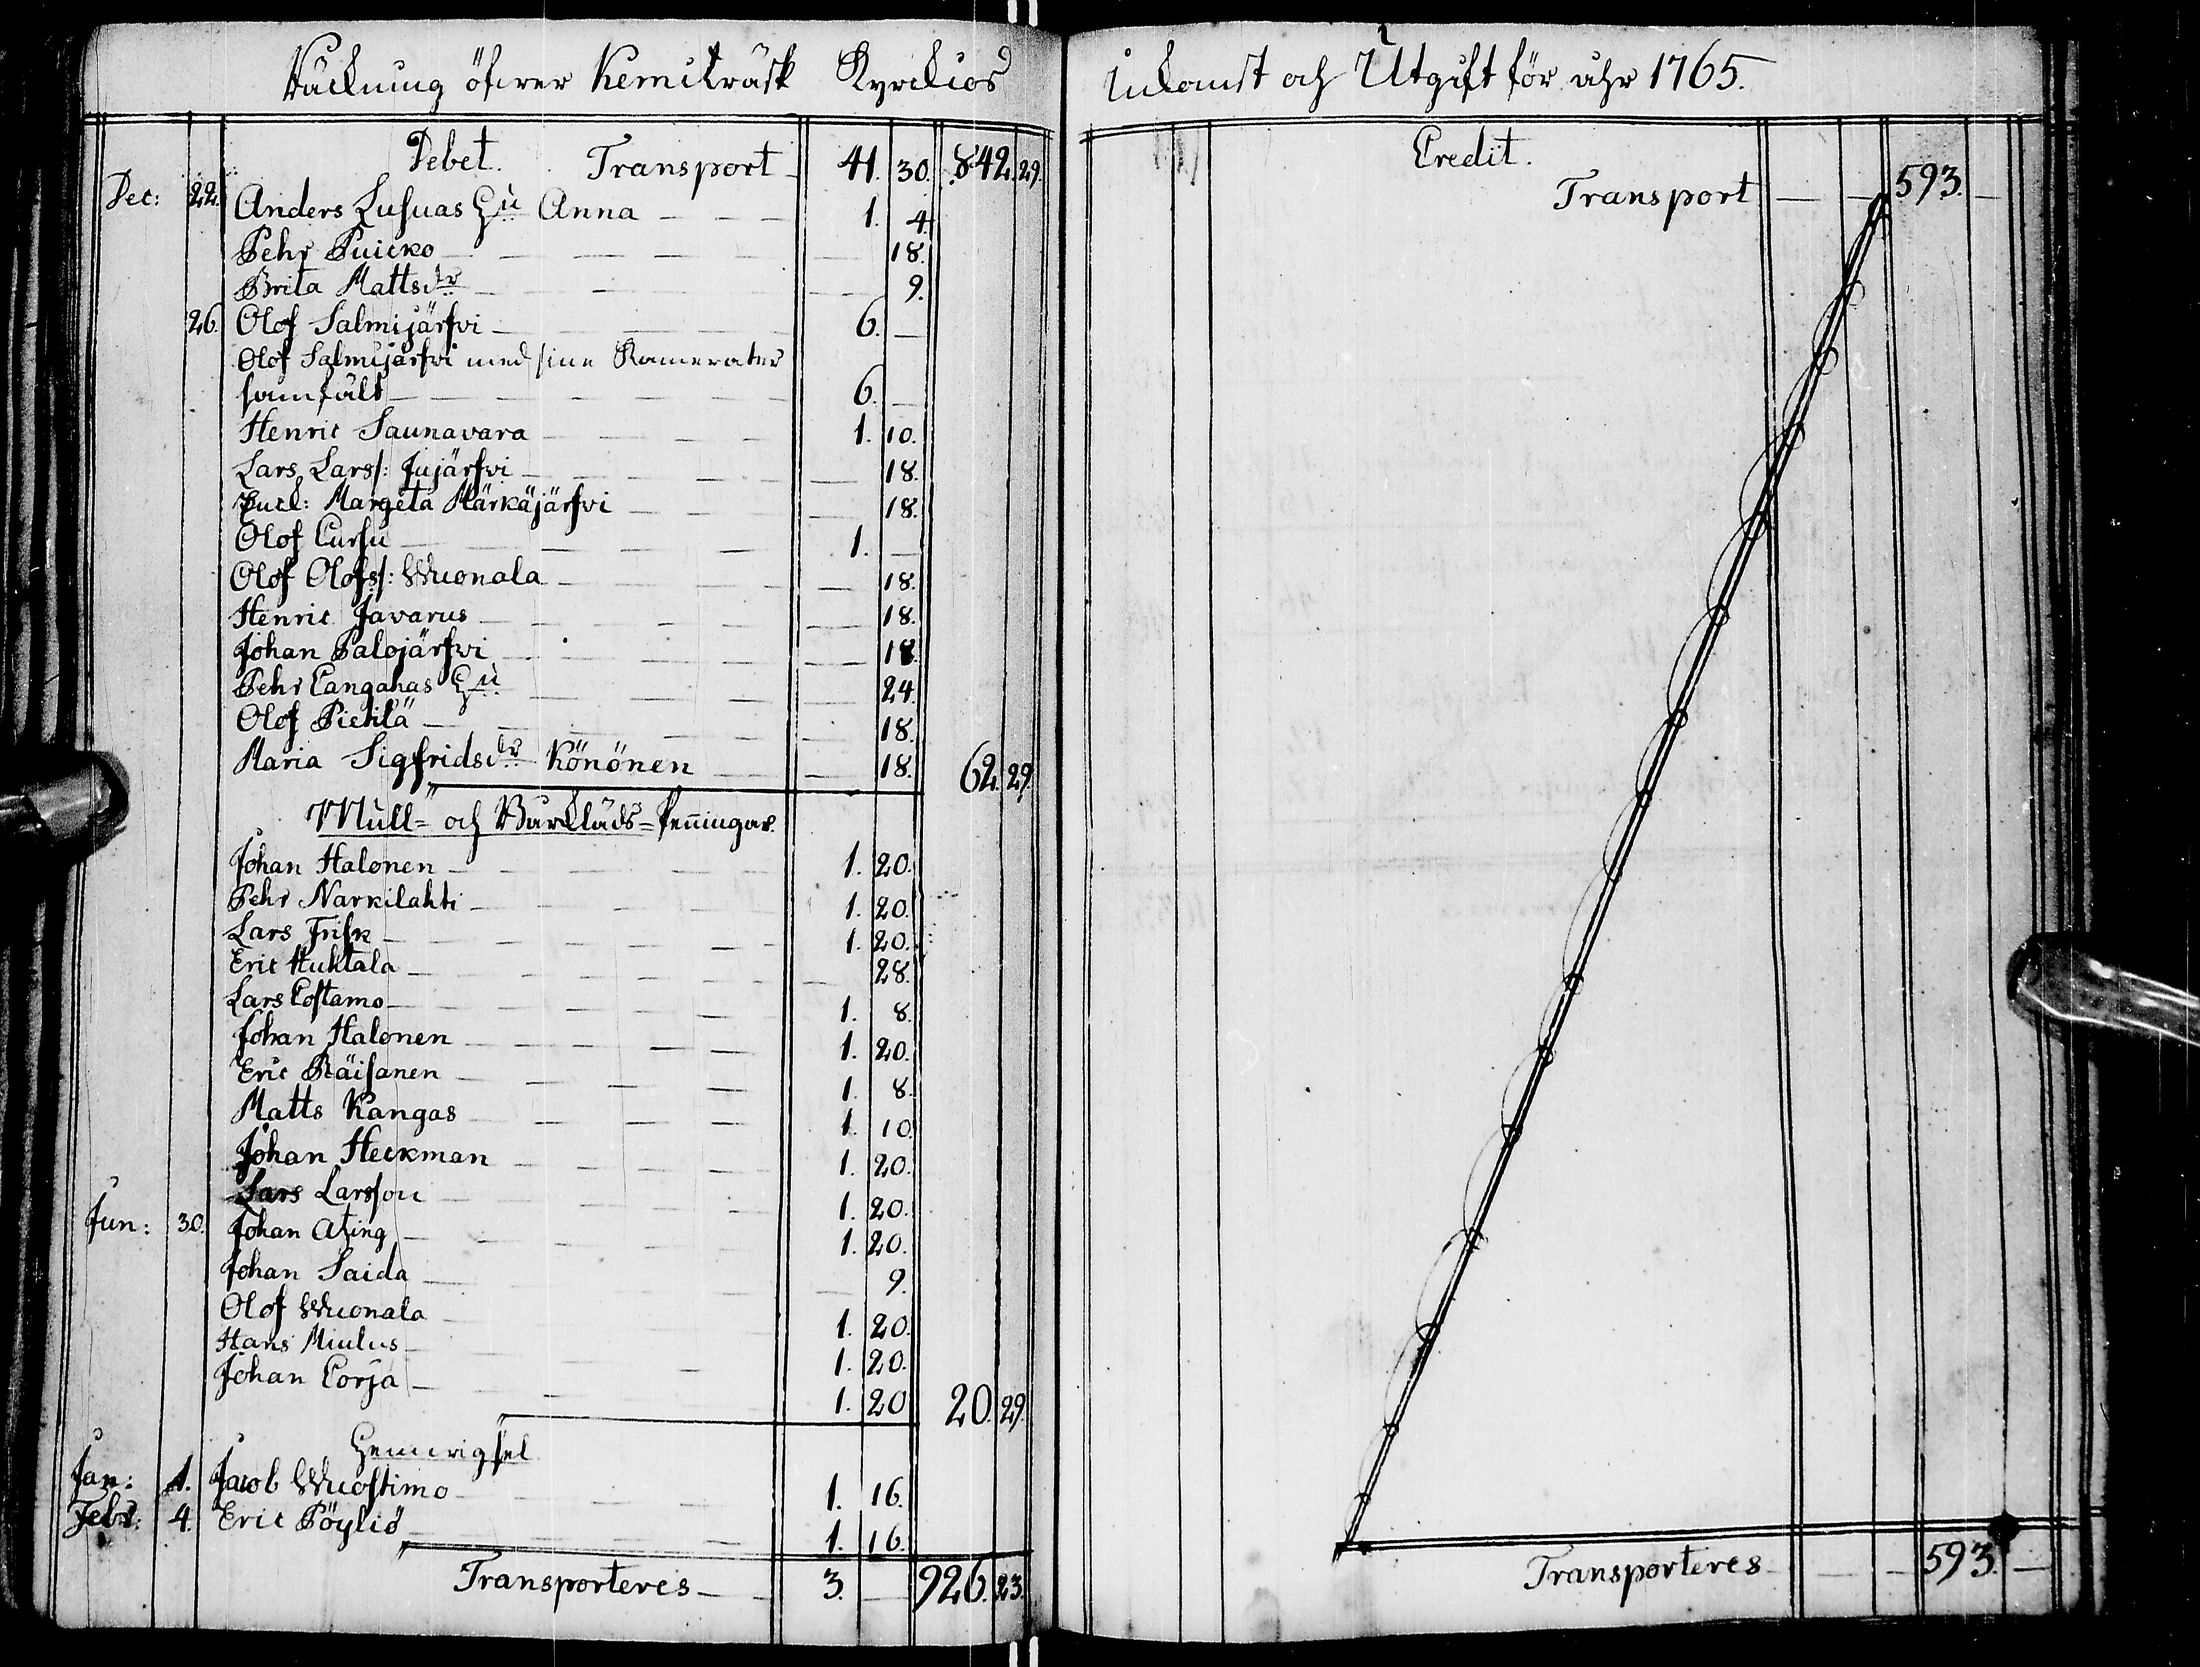 Räckning öfwer Kemiträsk Kyrckios
Debet. Transport 41. 30. 842. 29.
Dec: 22. Anders Lusuas Hu Anna 1. 4.
Pehr Puicko 18.
Brita Mattsdr 9.
26. Olof Salmijärfwi 6. —
Olof Salmijärfwi med sine Kamerater
samfält 6. —
Henric Saunavara 1. 10.
Lars Larss: Jujärfwi 18.
Enck: Margeta Märkäjärfwi 18.
Olof Cursu 1. —
Olof Olofss: Wuonala 18.
Henric Javarus 18.
Johan Palojärfwi 18.
Pehr Cangahas Hu 24.
Olof Pietilä 18.
Maria Sigfridsdr Könönen 18. 62. 29.
Mull- och Bårkläds-Penningar.
Johan Halonen 1. 20.
Pehr Narkilahti 1. 20.
Lars Frisk 1. 20.
Eric Huhtala 28.
Lars Costamo 1. 8.
Johan Halonen 1. 20.
Eric Räisänen 1. 8.
Matts Kangas 1. 10.
Johan Heckman 1. 20.
Lars Larsson 1. 20.
Jun: 30. Johan 1. 20.
Johan Saida 9.
Olof Wuonala 1. 20.
Hans Miulus 1. 20.
Johan Corja 1. 20. 20. 29.
Hemvigsel
Jan: 1. Jacob Wuostimo 1. 16.
Febr: 4. Eric Pöyliö 1. 16.
Transporteres 3. — 926. 23.
Inkomst och Utgift för åhr 1765.
Credit.
Transport — — 593. —
Transporteres — — 593. —